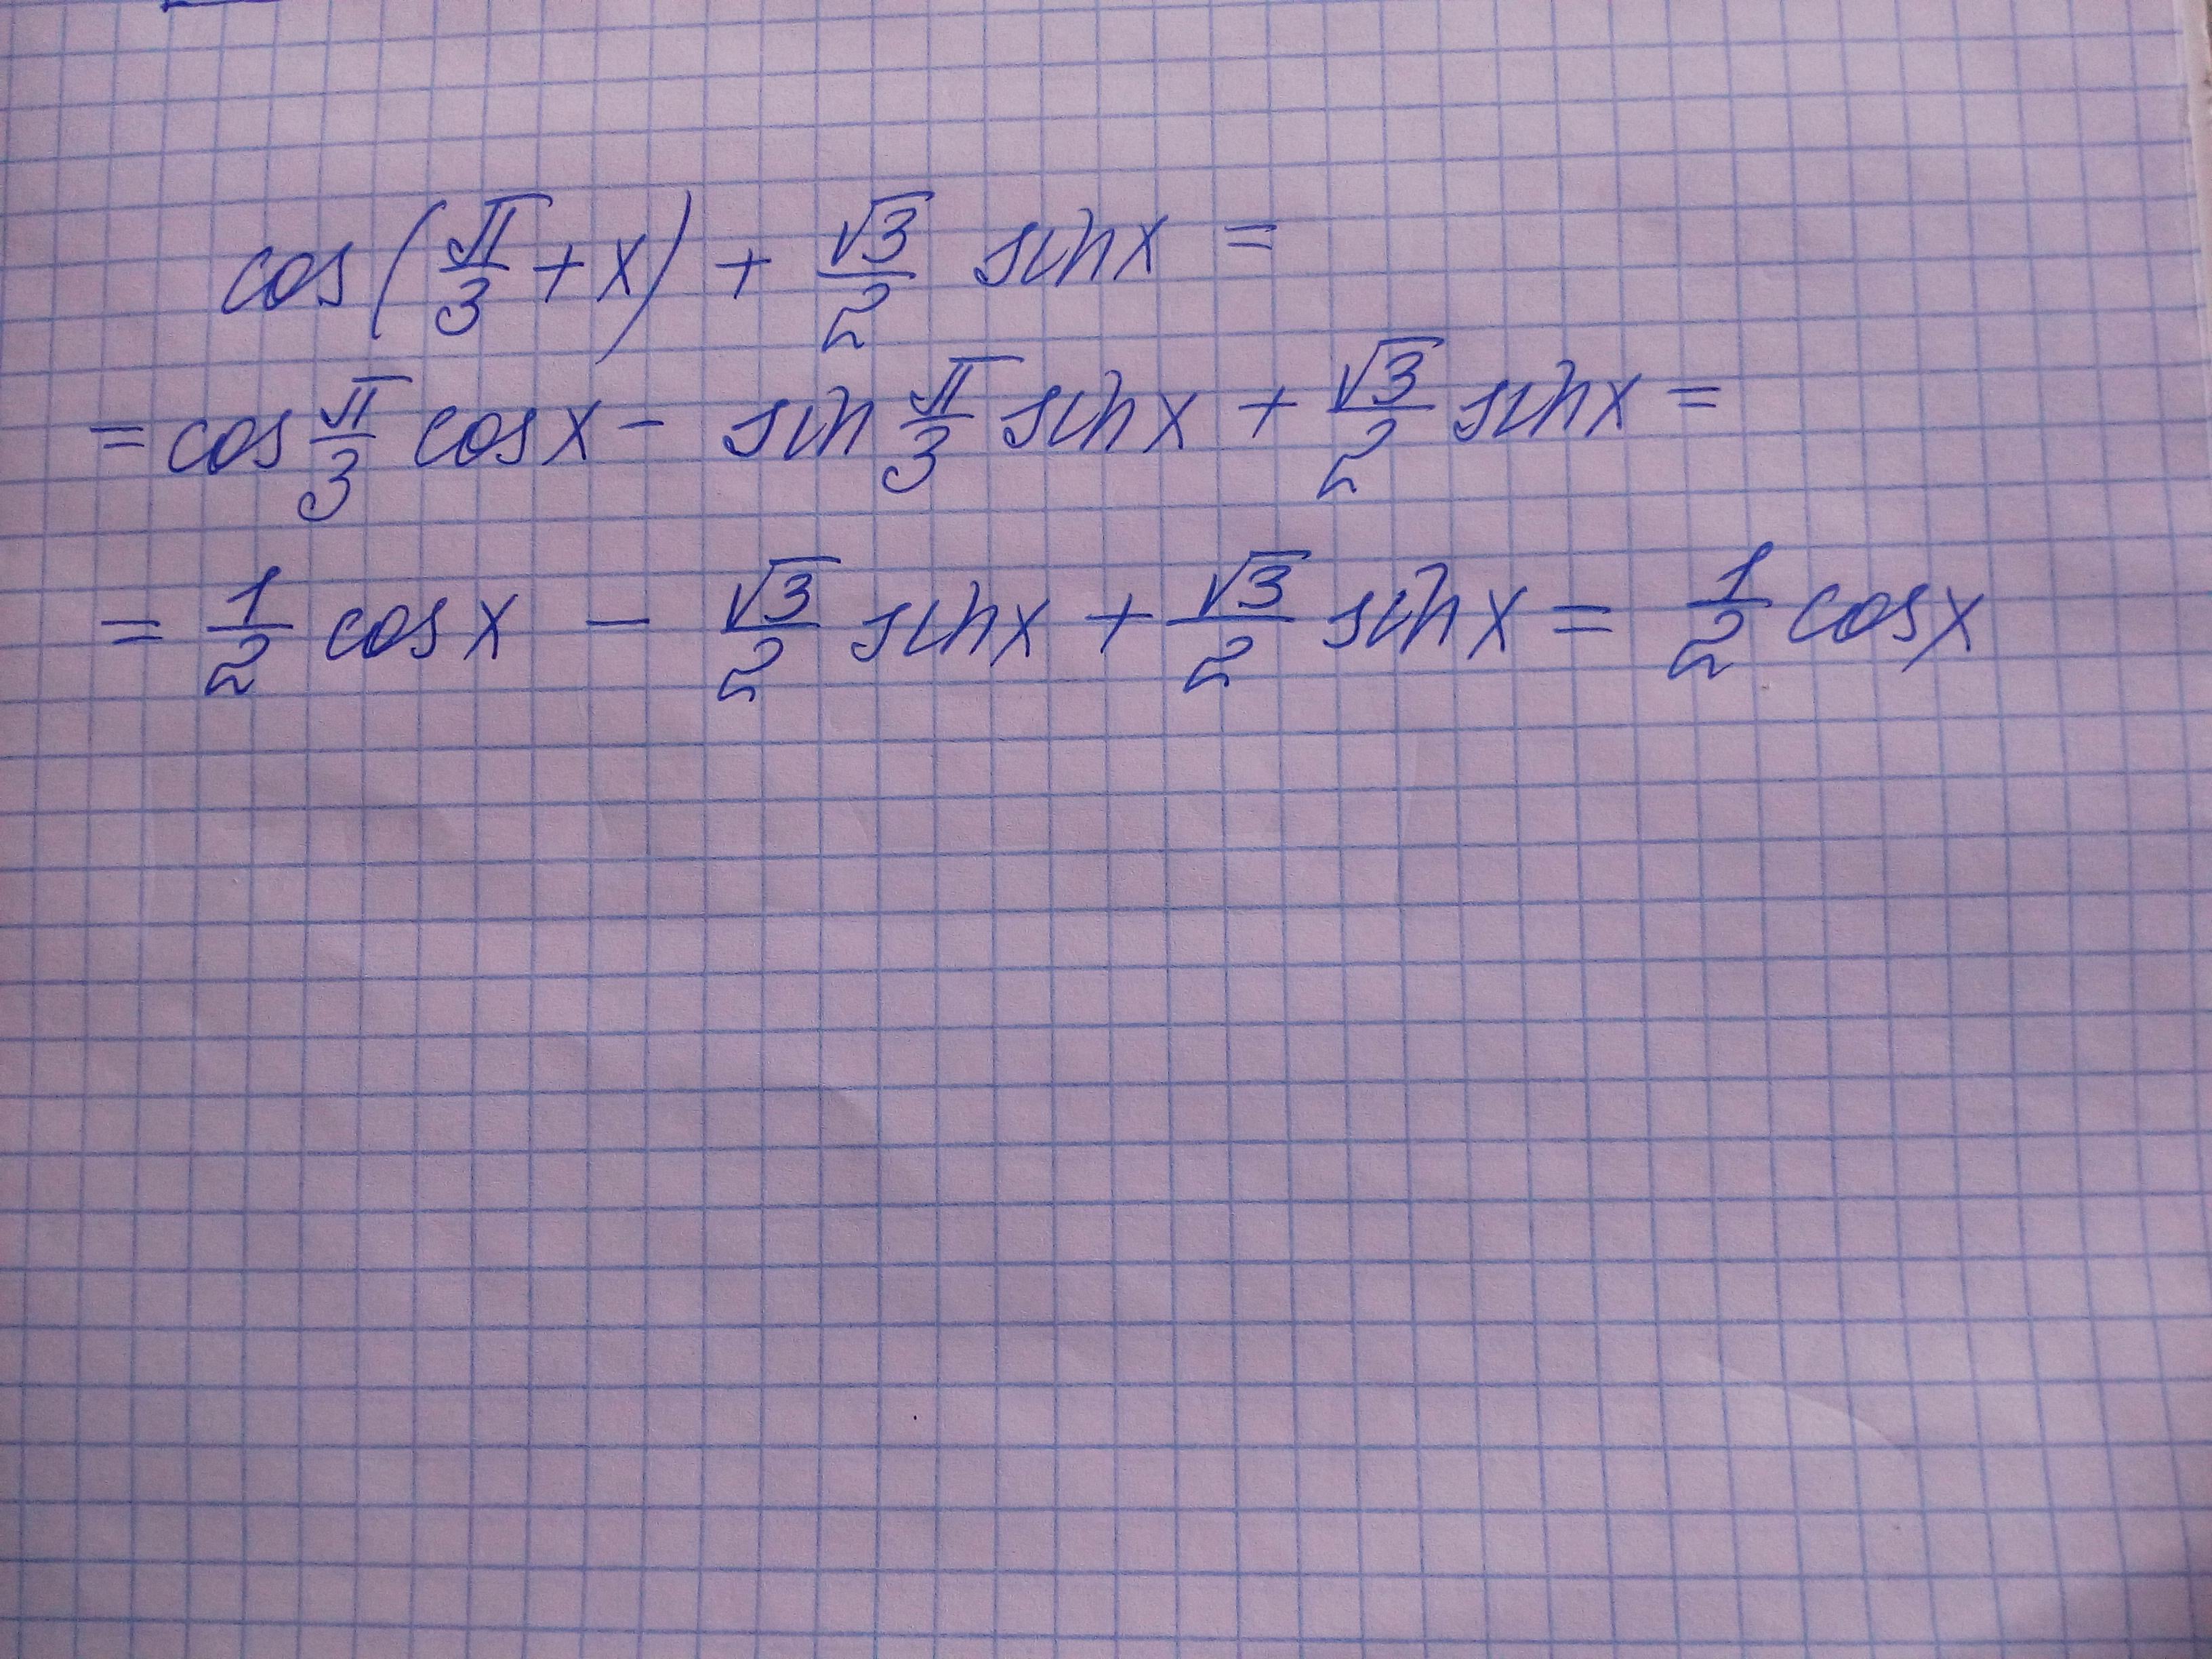 cos(π/3 + x) + √3/2 sin x =
= cos π/3 cos x - sin π/3 sin x + √3/2 sin x =
= 1/2 cos x - √3/2 sin x + √3/2 sin x = 1/2 cos x